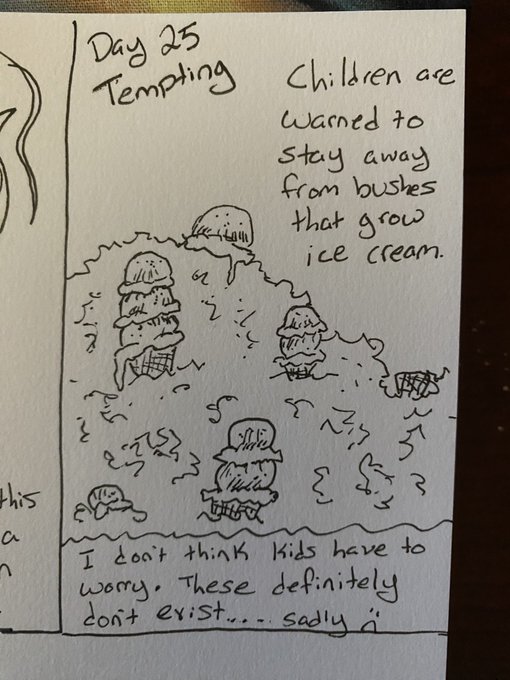 Day 25
Tempting
Children are
warned to
stay away
from bushes
that grow
ice cream.
this
a
I don't think kids have to
worry. These definitely
don't exist..... sadly :(